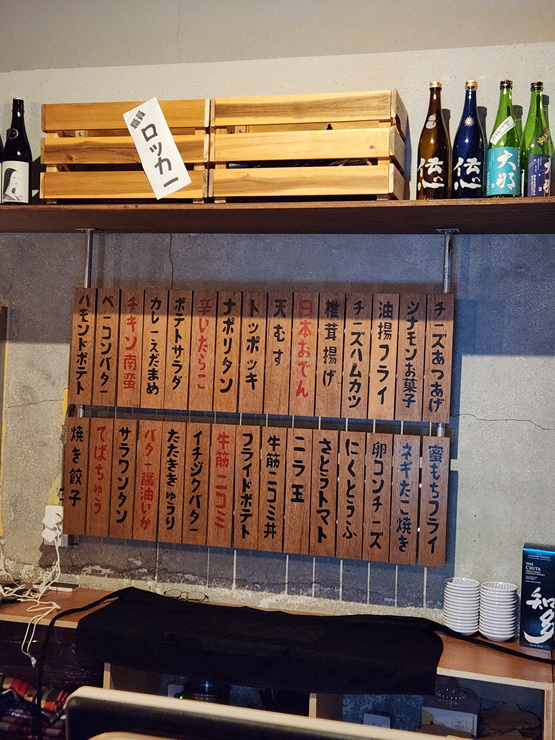 職員
ロッカー
伝心
伝心
大那
チーズあつあげ
シナモンお菓子
油揚フライ
チーズハムカツ
椎茸揚げ
日本おでん
天むす
トッポッキ
ナポリタン
辛いたらこ
ポテトサラダ
カレーえだまめ
チキン南蛮
ベーコンバター
ハモンドポテト
蜜もちフライ
ネギたこ焼き
卵コンチーズ
にくどうふ
さとうトマト
ニラ玉
牛筋ニコミ丼
フライドポテト
牛筋ニコミ
イチジクバター
たたききゅうり
バター醤油いか
サラワンタン
てばちゅう
焼き餃子
THE
CHITA
知多